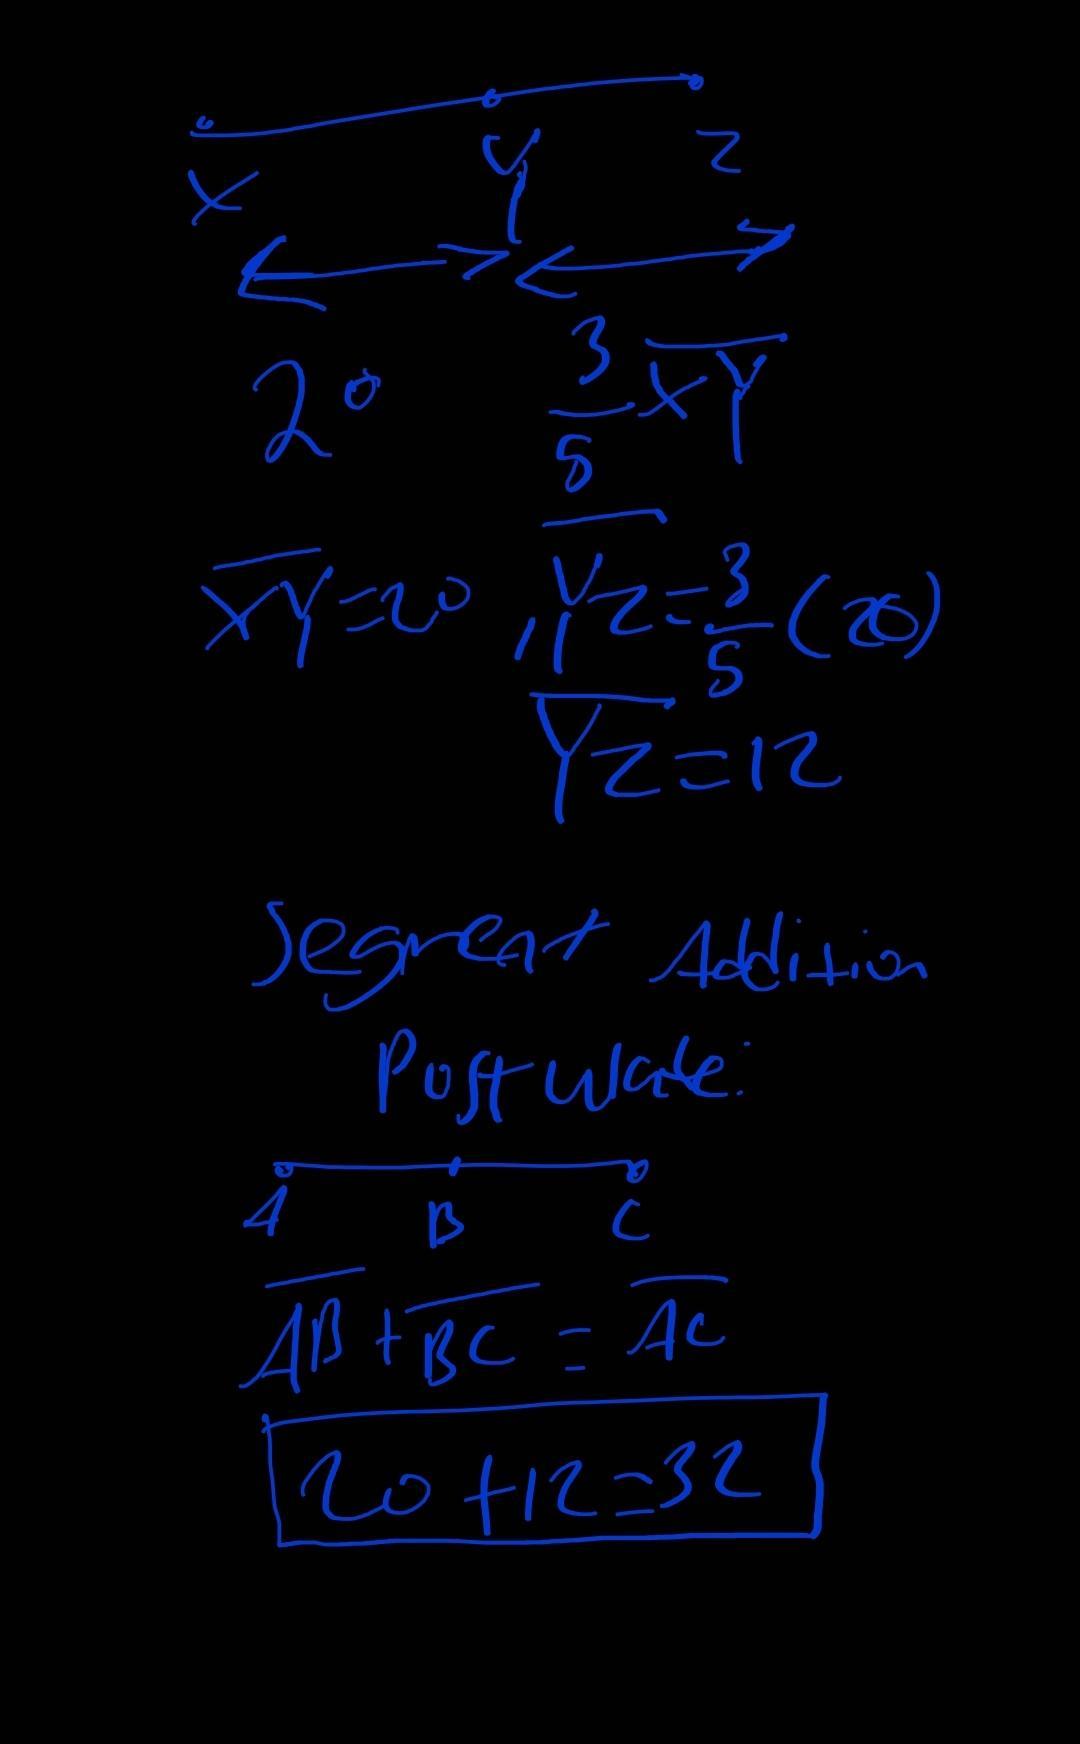 X Y Z
20 3/5 X̅Y̅
X̅Y̅=20, Y̅Z̅=3/5(20)
Y̅Z̅=12
Segment Addition
Postulate:
A B C
A̅B̅+B̅C̅=A̅C̅
20+12=32